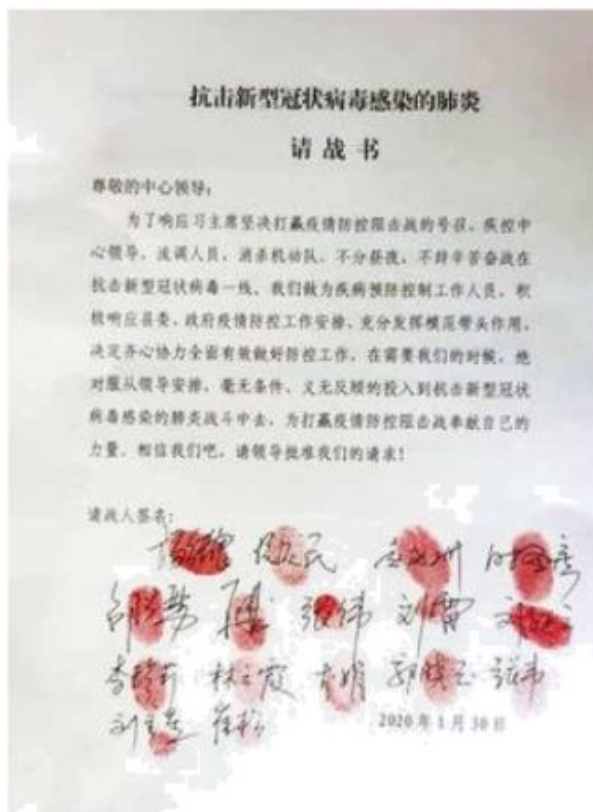 抗击新型冠状病毒感染的肺炎
请战书
尊敬的中心领导：
为了响应习主席坚决打赢疫情防控阻击战的号召，疾控中
心领导、流调人员、消杀机动队，不分昼夜，不辞辛苦奋战在
抗击新型冠状病毒一线，我们做为疾病预防控制工作人员，积
极响应县委、政府疫情防控工作安排，充分发挥模范带头作用，
决定齐心协力全面有效做好防控工作，在需要我们的时候，绝
对服从领导安排，毫无条件、义无反顾的投入到抗击新型冠状
病毒感染的肺炎战斗中去，为打赢疫情防控阻击战奉献自己的
力量，相信我们吧，请领导批准我们的请求！
请战人签名：
张伟 刘雷
张韦
2020年1月30日